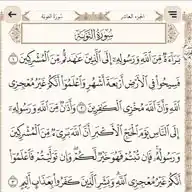 الجزء العاشر سورة التوبة
سُورَةُ التَّوْبَةِ
بَرَآءَةٌ مِّنَ ٱللَّهِ وَرَسُولِهِۦٓ إِلَى ٱلَّذِينَ عَٰهَدتُّم مِّنَ ٱلْمُشْرِكِينَ ١
فَسِيحُوا۟ فِى ٱلْأَرْضِ أَرْبَعَةَ أَشْهُرٍ وَٱعْلَمُوٓا۟ أَنَّكُمْ غَيْرُ مُعْجِزِى
ٱللَّهِ وَأَنَّ ٱللَّهَ مُخْزِى ٱلْكَٰفِرِينَ ٢ وَأَذَٰنٌ مِّنَ ٱللَّهِ وَرَسُولِهِۦٓ
إِلَى ٱلنَّاسِ يَوْمَ ٱلْحَجِّ ٱلْأَكْبَرِ أَنَّ ٱللَّهَ بَرِىٓءٌ مِّنَ ٱلْمُشْرِكِينَ
وَرَسُولُهُۥ ۚ فَإِن تُبْتُمْ فَهُوَ خَيْرٌ لَّكُمْ ۖ وَإِن تَوَلَّيْتُمْ فَٱعْلَمُوٓا۟
أَنَّكُمْ غَيْرُ مُعْجِزِى ٱللَّهِ ۗ وَبَشِّرِ ٱلَّذِينَ كَفَرُوا۟ بِعَذَابٍ أَلِيمٍ ٣